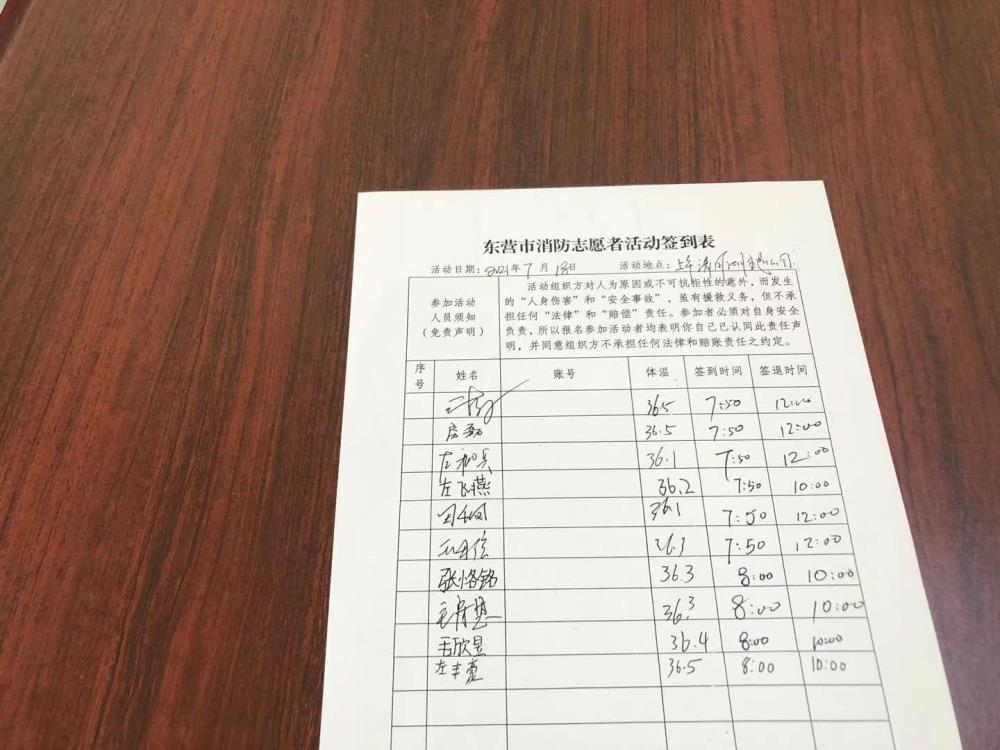 东营市消防志愿者活动签到表
活动日期：2021年7月18日 活动地点：
参加活动人员须知（免责声明）
活动组织方对人为原因或不可抗拒性的意外，而发生
的“人身伤害”和“安全事故”，虽有援救义务，但不承
担任何“法律”和“赔偿”责任。参加者必须对自身安全
负责，所以报名参加活动者均表明你自己已认同此责任声
明，并同意组织方不承担任何法律和赔账责任之约定。
序号 姓名 账号 体温 签到时间 签退时间
36.5 7:50 12:00
36.5 7:50 12:00
36.1 7:50 12:00
左飞燕 36.2 7:50 10:00
36.1 7:50 12:00
36.3 7:50 12:00
张恪铭 36.3 8:00 10:00
36.3 8:00 10:00
毛欣昱 36.4 8:00 10:00
左丰豪 36.5 8:00 10:00